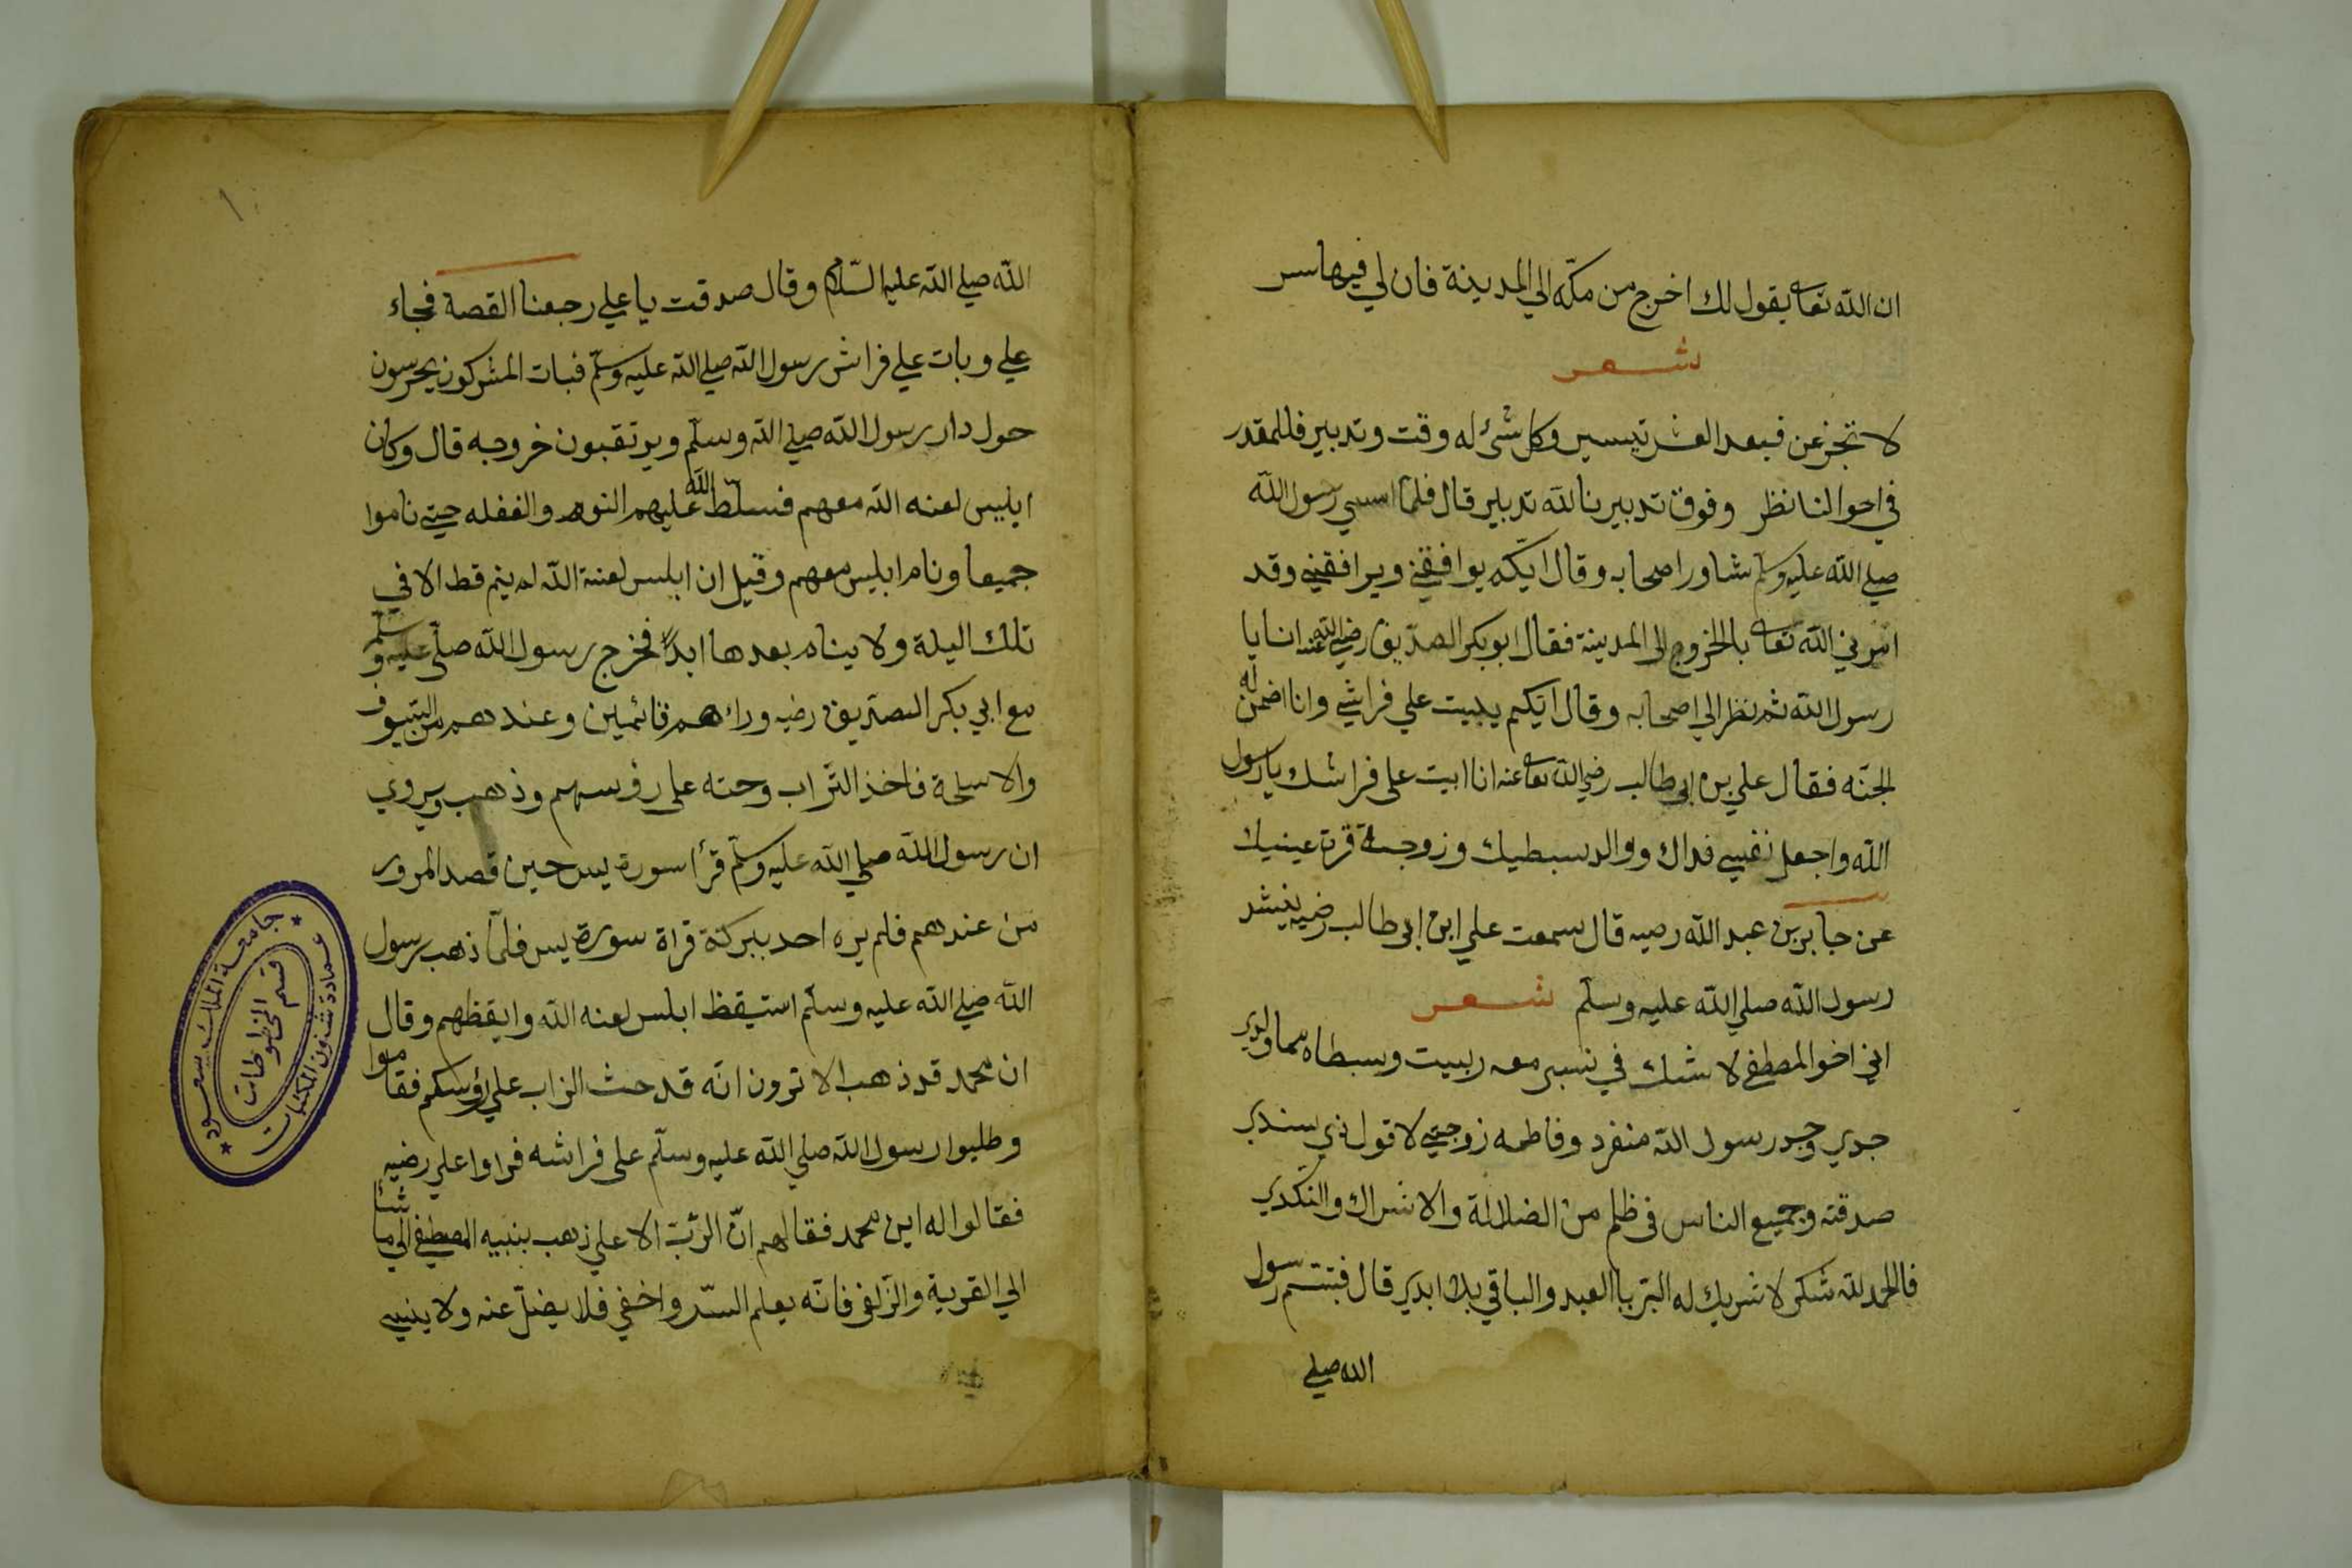 ان الله تعا يقول لك اخرج من مكّه الي المدينة فان لي فيها سر
شعر
لا تجزعن فبعد العشر تيسير وكل شئ له وقت وتدبير فللمقدر
في احوالنا نظر وفوق تدبيرنا لله تدبير قال فلما امسي رسول الله
صلي الله عليه وسلم شاور اصحابه وقال ايكم يوافقني ويرافقني وقد
امرني الله تعا بالخروج الي المدينة فقال ابو بكر الصدّيق رضي الله عنه انا يا
رسول الله ثم نظر الي اصحابه وقال ايّكم يبيت علي فراشي وانا اضمن له
الجنّه فقال علي بن ابي طالب رضي الله تعا عنه انا ابيت على فراشك يا رسول
الله واجعل نفسي فداك ووالد سبطيك وزوجة قرة عينيك
عن جابر بن عبد الله رضيه قال سمعت علي ابن ابي طالب رضيه ينشد
رسول الله صلي الله عليه وسلّم شعر
اني اخو المصطفي لا شك في نسبي معه ربيت وسبطاه هما ولدي
جدي وجد رسول الله منفرد وفاطمه زوجتي لا قول ذي سندي
صدقته وجميع الناس في ظلم من الضلالة والاشراك والنكدي
فالحمد لله شكر لا شريك له البتر باالعبد والباقي بلا ابدي قال فبتسم رسول
الله صلي
١
الله صلي الله عليه السّلام وقال صدقت يا علي رجعنا القصة فجاء
علي وبات علي فراش رسول الله صلي الله عليه وسلّم فبات المشركون يحرسون
حول دار رسول الله صلي الله وسلّم ويرتقبون خروجه قال وكان
ابليس لعنه الله معهم فسلّط الله عليهم النوم والغفله حتي ناموا
جميعا ونام ابليس معهم وقيل ان ابلس لعنة الله لم ينم قط الا في
تلك اليلة ولا ينام بعدها ابدًا فخرج رسول الله صلّي عليه وسلّم
مع ابي بكر الصدّيق رضيه وراءهم قائمين وعندهم من السّيوف
والاسلحة فاخذ التّراب وحته على رؤسهم وذهب ويروي
ان رسول الله صلي الله عليه وسلّم قرأ سورة يس حين قصد المرور
من عندهم فلم يره احد ببركة قراة سورة يس فلمّا ذهب رسول
الله صلي الله عليه وسلّم استيقظ ابلس لعنه الله وايقظهم وقال
ان محمد قد ذهب الا ترون انّه قد حث التراب علي رؤسكم فقاموا
وطلبوا رسول الله صلي الله عليه وسلّم على فراشه فراوا علي رضيه
فقالوا له اين محمد فقال لهم انّ الرّبّ الاعلي ذهب بنبيه المصطفي الي ما شا
الي القربة والزّلفي فانّه يعلم السّر واخفي فلا يضلّ عنه ولا ينسي
جامعة الملك سعود
عمادة شئون المكتبات
قسم المخطوطات